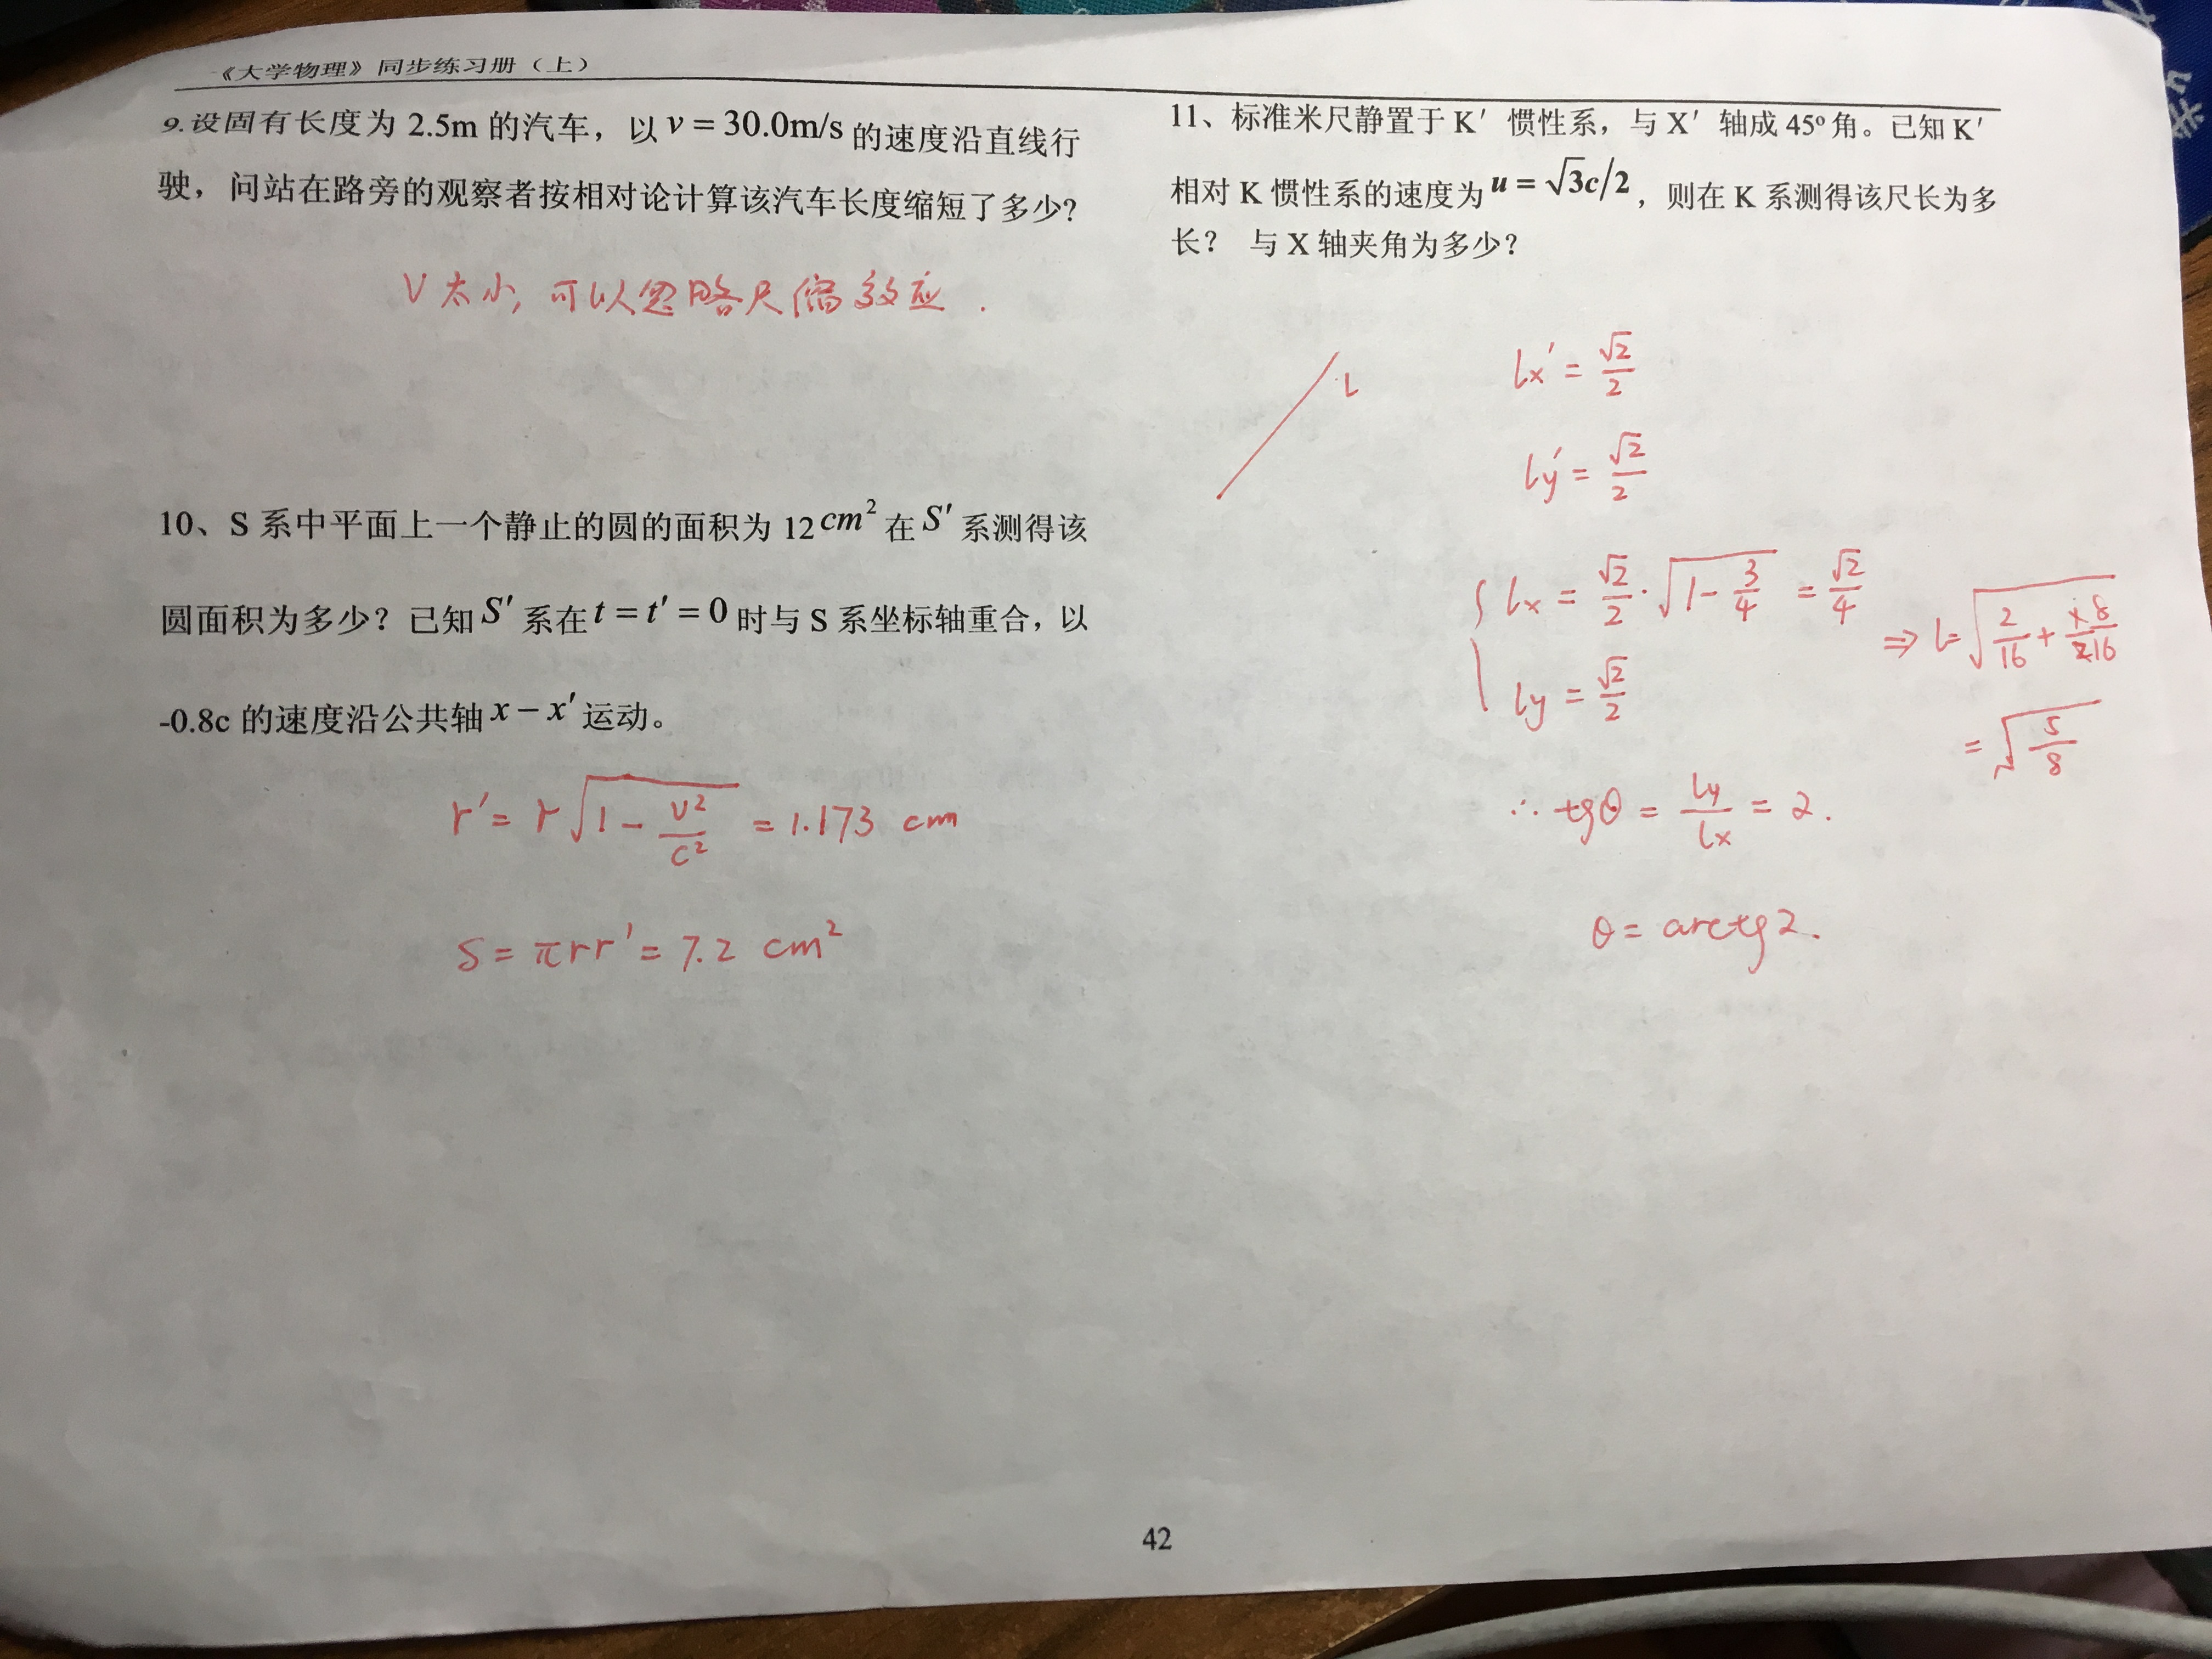 《大学物理》同步练习册（上）
9.设固有长度为 2.5m 的汽车，以 v = 30.0m/s 的速度沿直线行
驶，问站在路旁的观察者按相对论计算该汽车长度缩短了多少?
V太小, 可以忽略尺缩效应.
10、S 系中平面上一个静止的圆的面积为 12 cm² 在 S′ 系测得该
圆面积为多少？已知 S′ 系在 t = t′ = 0 时与 S 系坐标轴重合，以
-0.8c 的速度沿公共轴 x − x′ 运动。
r′ = r√(1 - v²/c²) = 1.173 cm
S = πrr′ = 7.2 cm²
11、标准米尺静置于 K′ 惯性系，与 X′ 轴成 45º 角。已知 K′
相对 K 惯性系的速度为 u = √3c/2，则在 K 系测得该尺长为多
长？ 与 X 轴夹角为多少？
L
lx′ = √2/2
ly′ = √2/2
{ lx = √2/2 · √(1 - 3/4) = √2/4
ly = √2/2
⇒ l = √(2/16 + 8/16)
= √(5/8)
∴ tgθ = ly/lx = 2.
θ = arctg2.
42